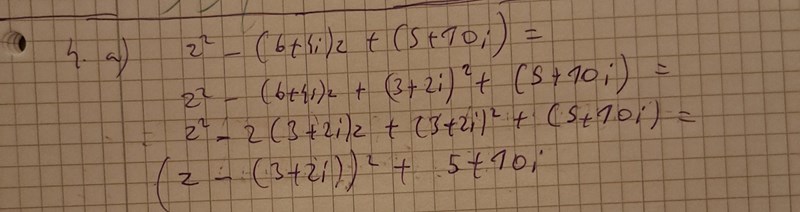 4. a) z² - (6+4i)z + (5+10i) =
z² - (6+4i)z + (3+2i)² + (5+10i) =
z² - 2(3+2i)z + (3+2i)² + (5+10i) =
(z - (3+2i))² + 5+10i